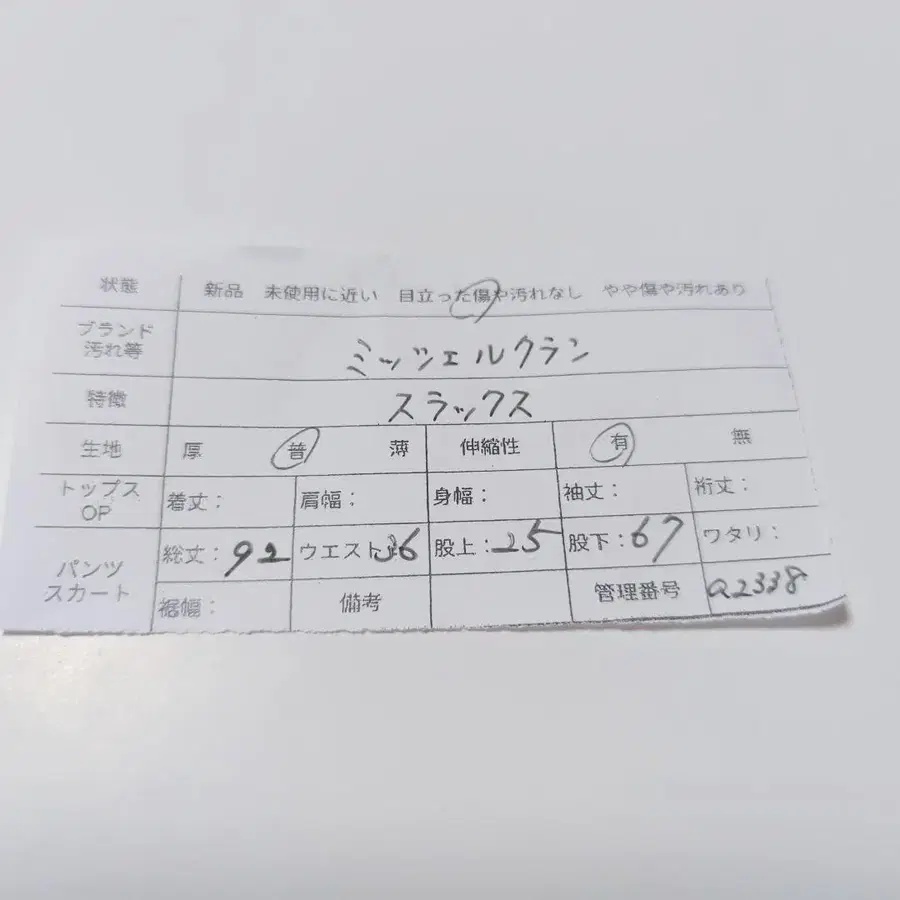 状態 新品 未使用に近い 目立った傷や汚れなし やや傷や汚れあり
ブランド
汚れ等 ミッシェルクラン
特徴 スラックス
生地 厚 普 薄 伸縮性 有 無
トップス
OP 着丈: 肩幅: 身幅: 袖丈: 裄丈:
パンツ
スカート 総丈:92 ウエスト:36 股上:25 股下:67 ワタリ:
裾幅: 備考 管理番号 a2338